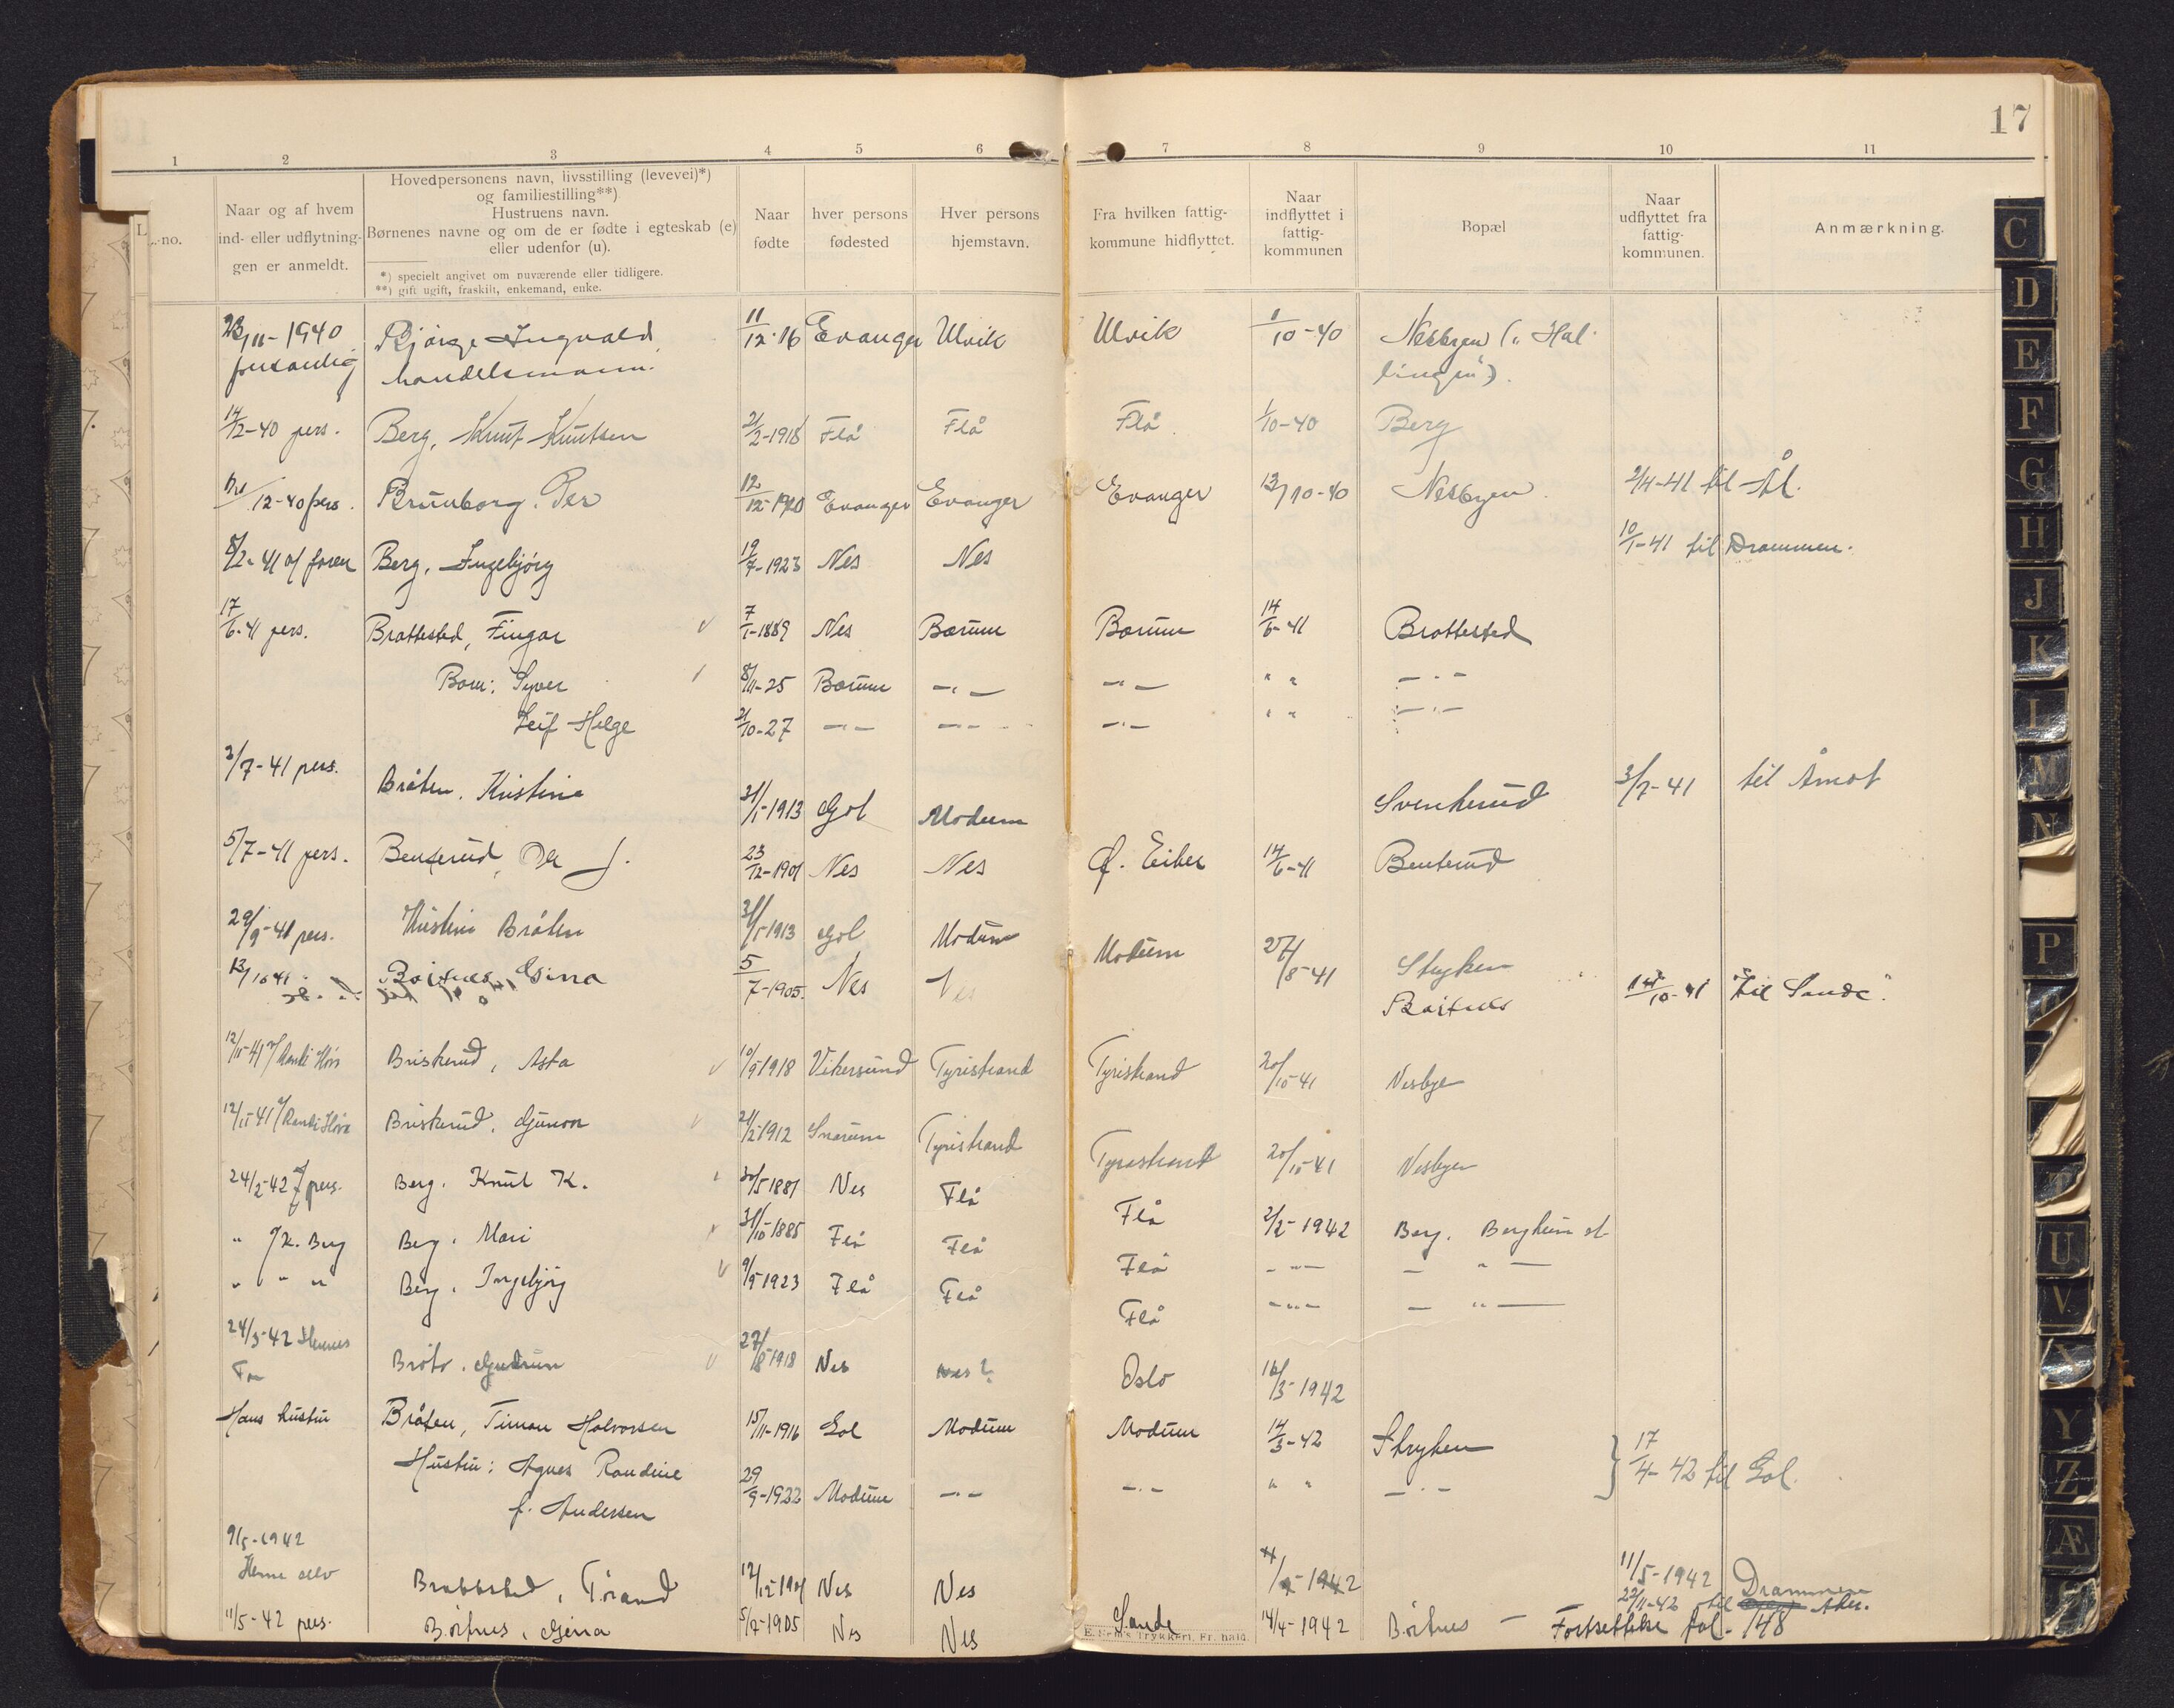 17
1 2 3 4 5 6 7 8 9 10 11
L.-no.
Naar og af hvem
ind- eller udflytnin-
gen er anmeldt.
Hovedpersonens navn, livsstilling (levevei)*)
og familiestilling**)
Hustruens navn.
Børnenes navne og om de er fødte i egteskab (e)
eller udenfor (u).
*) specielt angivet om nuværende eller tidligere.
**) gift ugift, fraskilt, enkemand, enke.
Naar
fødte
hver persons
fødested
Hver persons
hjemstavn.
Fra hvilken fattig-
kommune hidflyttet.
Naar
indflyttet i
fattig-
kommunen
Bopæl
Naar
udflyttet fra
fattig-
kommunen.
Anmærkning.
23/11-1940 Bjørge Ingvald, 11/12-16 Evanger Ulvik Ulvik 1/10-40 Nesbyen („Hal-
personlig handelsmann. lingen").
14/12-40 pers. Berg, Knut Knutsen 21/2-1918 Flå Flå Flå 1/10-40 Berg
/12-40 pers. Brunborg. Per 12/12-1920 Evanger Evanger Evanger 13/10-40 Nesbyen 2/4-41 til Ål.
8/2-41 a/ faren Berg, Ingebjørg 19/7-1923 Nes Nes 10/1-41 til Drammen.
17/6-41 pers. Brattested, Fingar 7/1-1889 Nes Bærum Bærum 14/6-41 Brattested
Barn: Syver 8/11-25 Bærum -"- -"- " " -"-
Leif Helge 21/10-27 -"- -"- -"- " " -"-
3/7-41 pers. Bråten, Kristine 31/1-1913 Gol Modum Svenkerud 3/7-41 til Åmot
5/7-41 pers. Benterud, Ole J. 23/12-1901 Nes Nes Ø. Eiker 14/6-41 Benterud
29/9-41 pers. Kristine Bråten 31/1-1913 Gol Modum Modum 27/8-41 Stryken
13/10 41 Børtnes, Gina 5/7-1905. Nes Nes Børtnes 14/10-41 "til Sande".
12/11-41 Briskerud, Asta 10/9 1918 Vikersund Tyristrand Tyristrand 20/10-41 Nesbye
12/11-41 Briskerud, Gunvor 21/2-1912 Snarum Tyristrand Tyristrand 20/10-41 Nesbyen
24/2-42 pers. Berg. Knut K. 30/5 1881 Nes Flå Flå 2/2-1942 Berg. Bergheim st.
" K. Berg Berg. Mari 31/10-1885 Flå Flå Flå -"- - " -
" " " Berg. Ingebjørg 9/9 1923 Flå Flå Flå -"- - " -
24/3-42 Bråto. Gudrun 27/8-1918 Nes Nes? Oslo 16/3-1942
Hans hustru Bråten, Timan Halvorsen 15/11-1916 Gol Modum Modum 14/3-42 Stryken } 17/4-42 til Gol.
Hustru: Agnes Randine 29/9-1922 Modum -"- -"- " " -"-
f. Andersen
9/5-1942
Brattested, Tørand 12/12-1901 Nes Nes 1942 11/5-1942 Drammen
22/11-42 til Aker.
11/5-42 pers. Børtnes, Gina 5/7-1905 Nes Nes Sande 14/4-1942 Børtnes — Fortsettelse fol. 148
E. Sem's Trykkeri, Fr.hald.
C
D
E
F
G
H
J
K
L
M
N
P
T
U
V
X
Y
Z
Æ